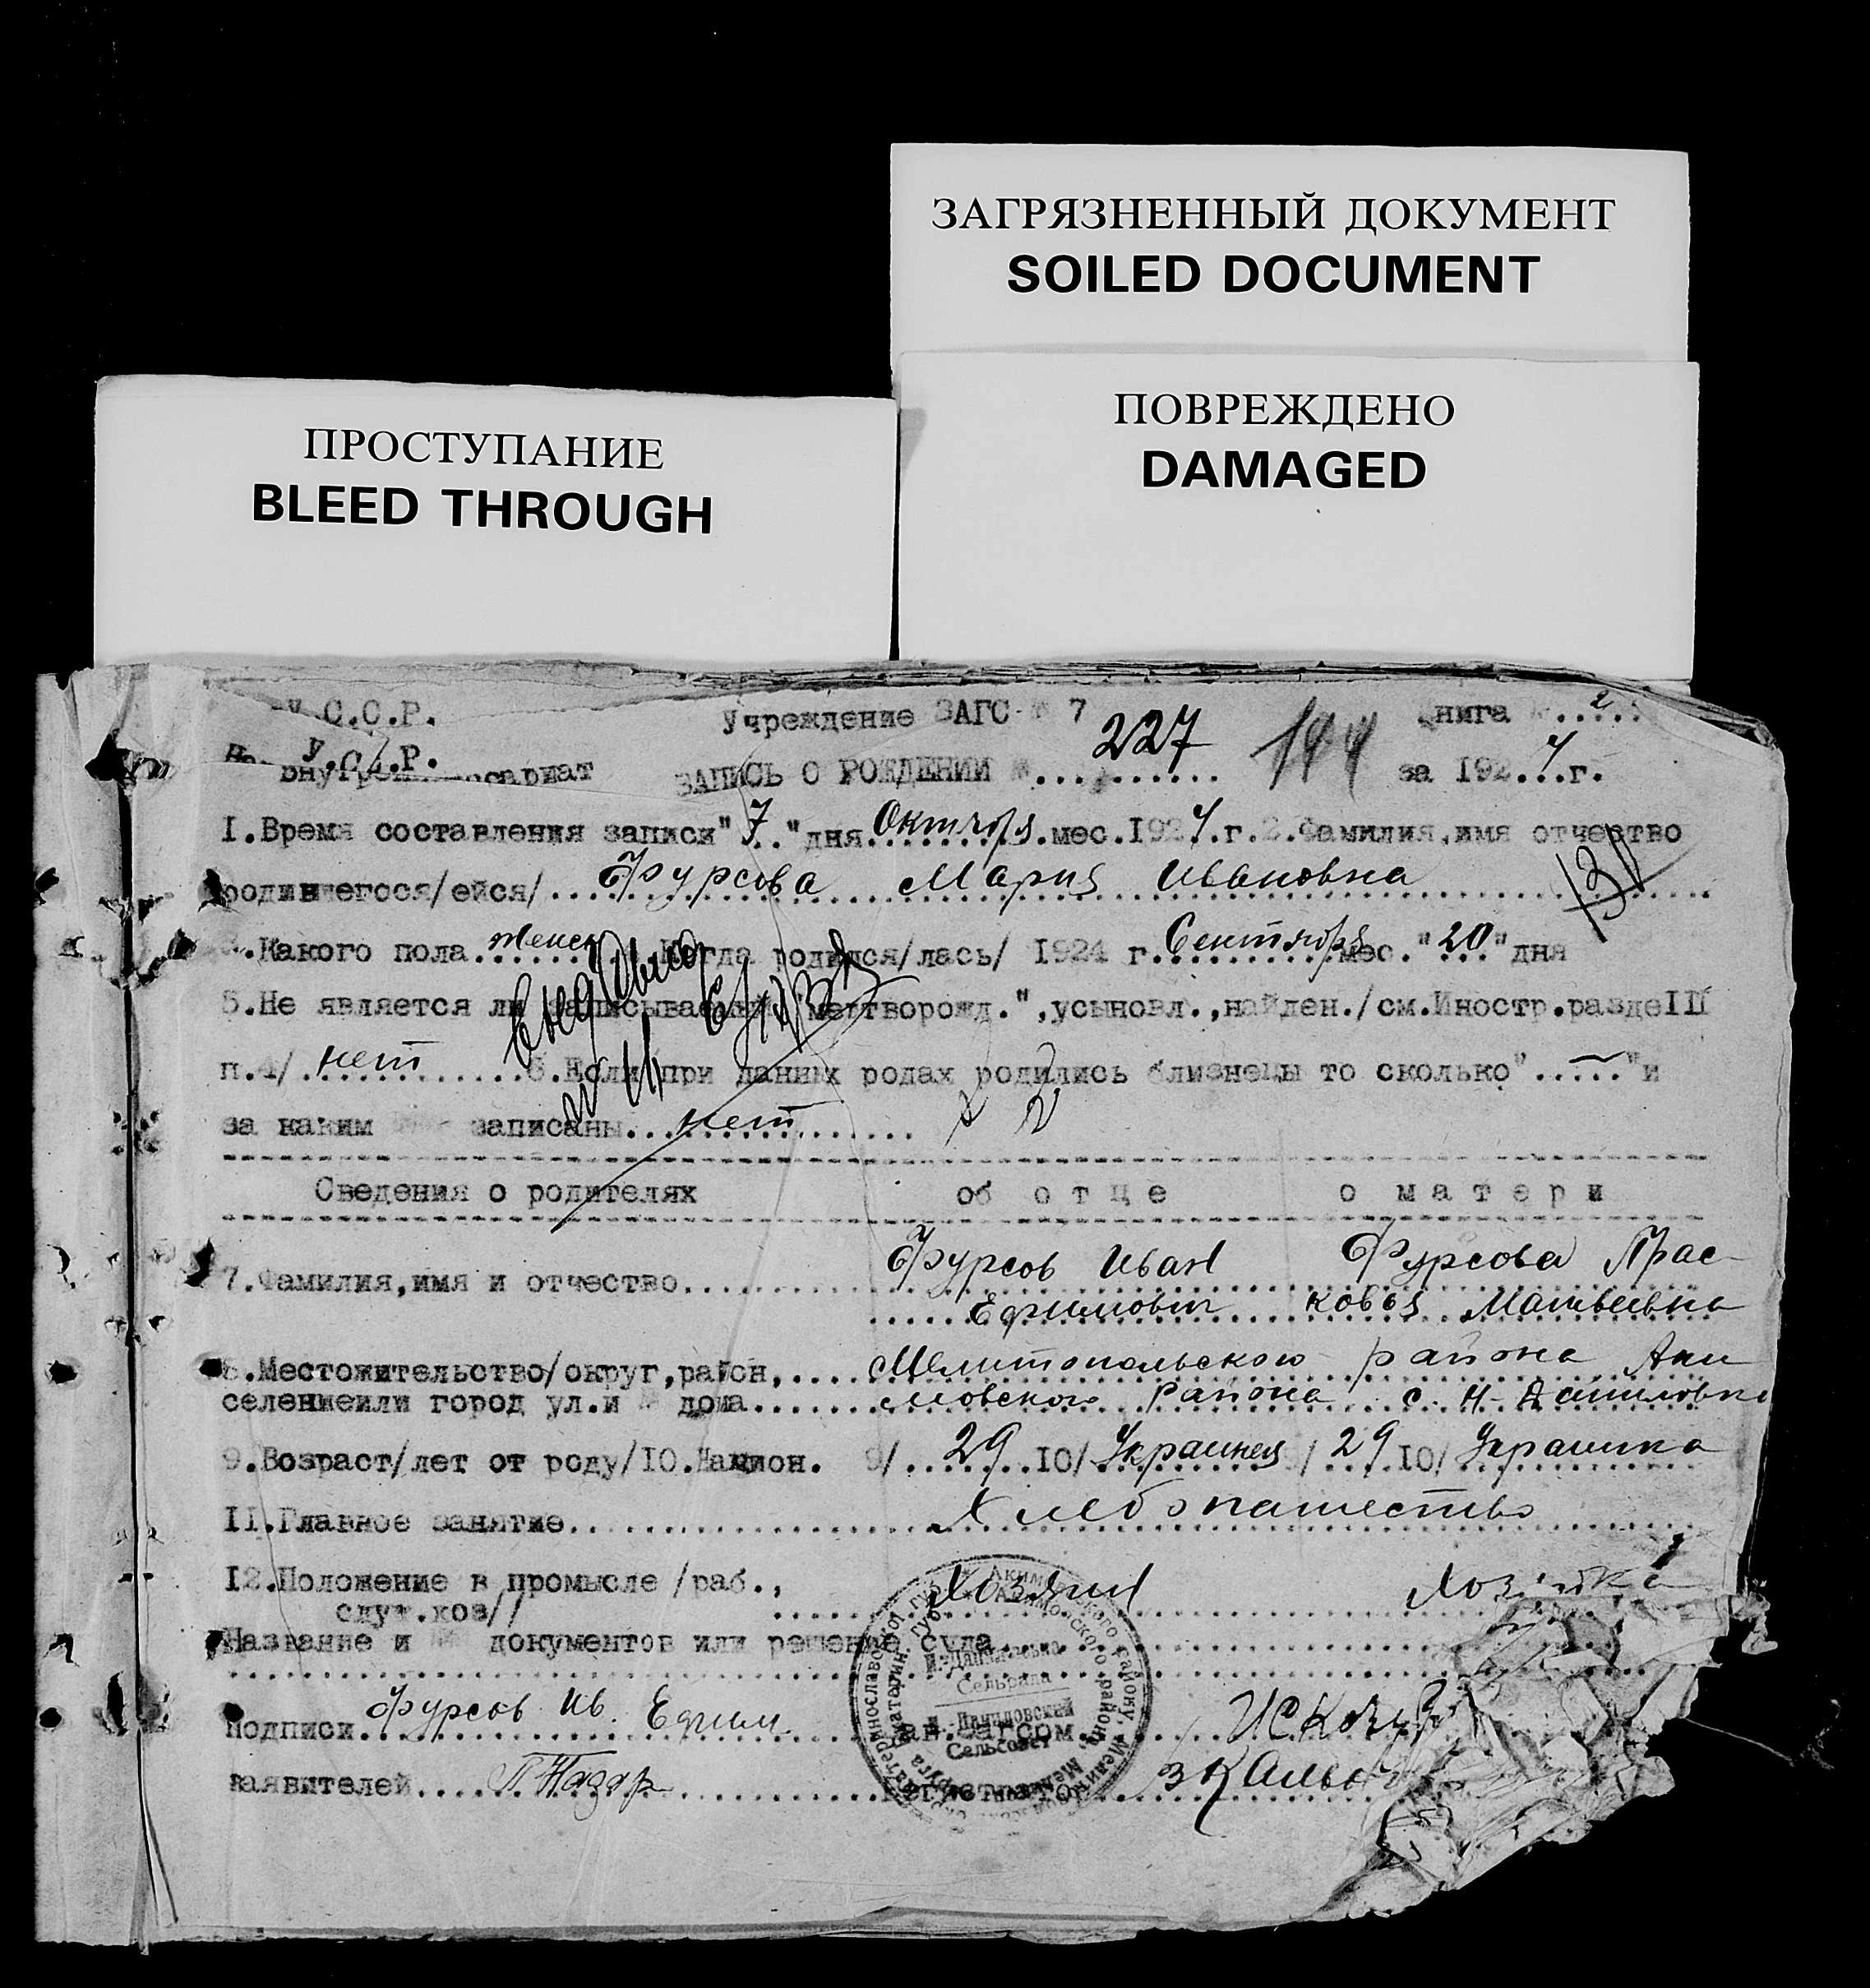 ЗАГРЯЗНЕННЫЙ ДОКУМЕНТ
SOILED DOCUMENT
ПРОСТУПАНИЕ
BLEED THROUGH
ПОВРЕЖДЕНО
DAMAGED
У.С.С.Р. Учреждение ЗАГС 7 Книга 2
У.С.С.Р.
227 144
ЗАПИСЬ О РОЖДЕНИИ за 1924 г.
I.Время составления записи"7"дня Октября.мес.1924.г.2.Фамилия,имя отчество
родившегося/ейся/ Фурсова Мария Ивановна
3.Какого пола женск Когда родился/лась/ 1924 г. Сентября мес."20"дня
5.Не является ли записываемый "мертворожд.",усыновл.,найден./см.Иностр.раздеIII
п.4/ нет 6.Если при данных родах родились близнецы то сколько" — "и
за каким записаны нет
Сведения о родителях об отце о матери
Фурсов Иван Фурсова Прас-
7.Фамилия,имя и отчество
Ефимович ковья Матвеевна
8.Местожительство/округ,район, Мелитопольского района Аки
селениеили город ул.и дома мовского района с. Н-Даниловка
9.Возраст/лет от роду/10.Национ. 9/ 29 10/ Украинец / 29 10/ Украинка
11.Главное занятие Хлебопашество
12.Положение в промысле /раб., Хозяин Хозяйка
служ.хоз/
Название и документов или решение суда
Подписи Фурсов Ив. Ефим. Зав.Загсом
заявителей Регистратор
Сельрада
Н. Даниловский
Сельсовет